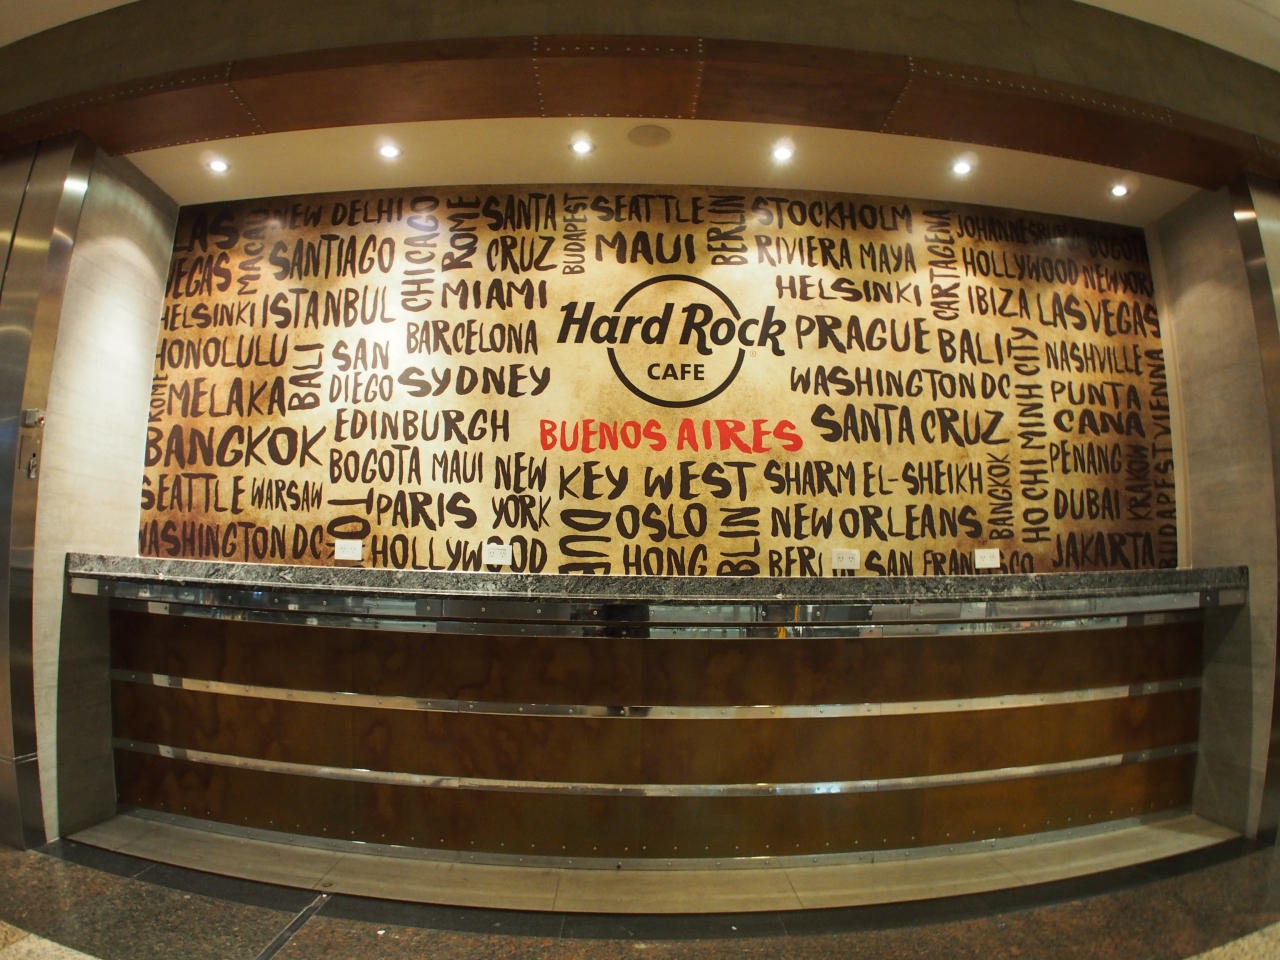 LAS VEGAS
MACAU
NEW DELHI
CHICAGO
ROME
SANTA CRUZ
BUDAPEST
SEATTLE
BERLIN
STOCKHOLM
CARTAGENA
JOHANNESBURG
BOGOTA
SANTIAGO
MAUI
RIVIERA MAYA
HOLLYWOOD
NEW YORK
HELSINKI
ISTANBUL
MIAMI
Hard Rock
CAFE
HELSINKI
IBIZA
LAS VEGAS
HONOLULU
BALI
SAN DIEGO
BARCELONA
PRAGUE
BALI
HO CHI MINH CITY
NASHVILLE
ROME
MELAKA
SYDNEY
WASHINGTON DC
PUNTA CANA
VIENNA
BANGKOK
EDINBURGH
BUENOS AIRES
SANTA CRUZ
SEATTLE
WARSAW
BOGOTA
MAUI
NEW YORK
KEY WEST
SHARM EL-SHEIKH
BANGKOK
PENANG
KRAKOW
BUDAPEST
WASHINGTON DC
PARIS
OSLO
NEW ORLEANS
DUBAI
HOLLYWOOD
HONG
BERLIN
SAN FRANCISCO
JAKARTA